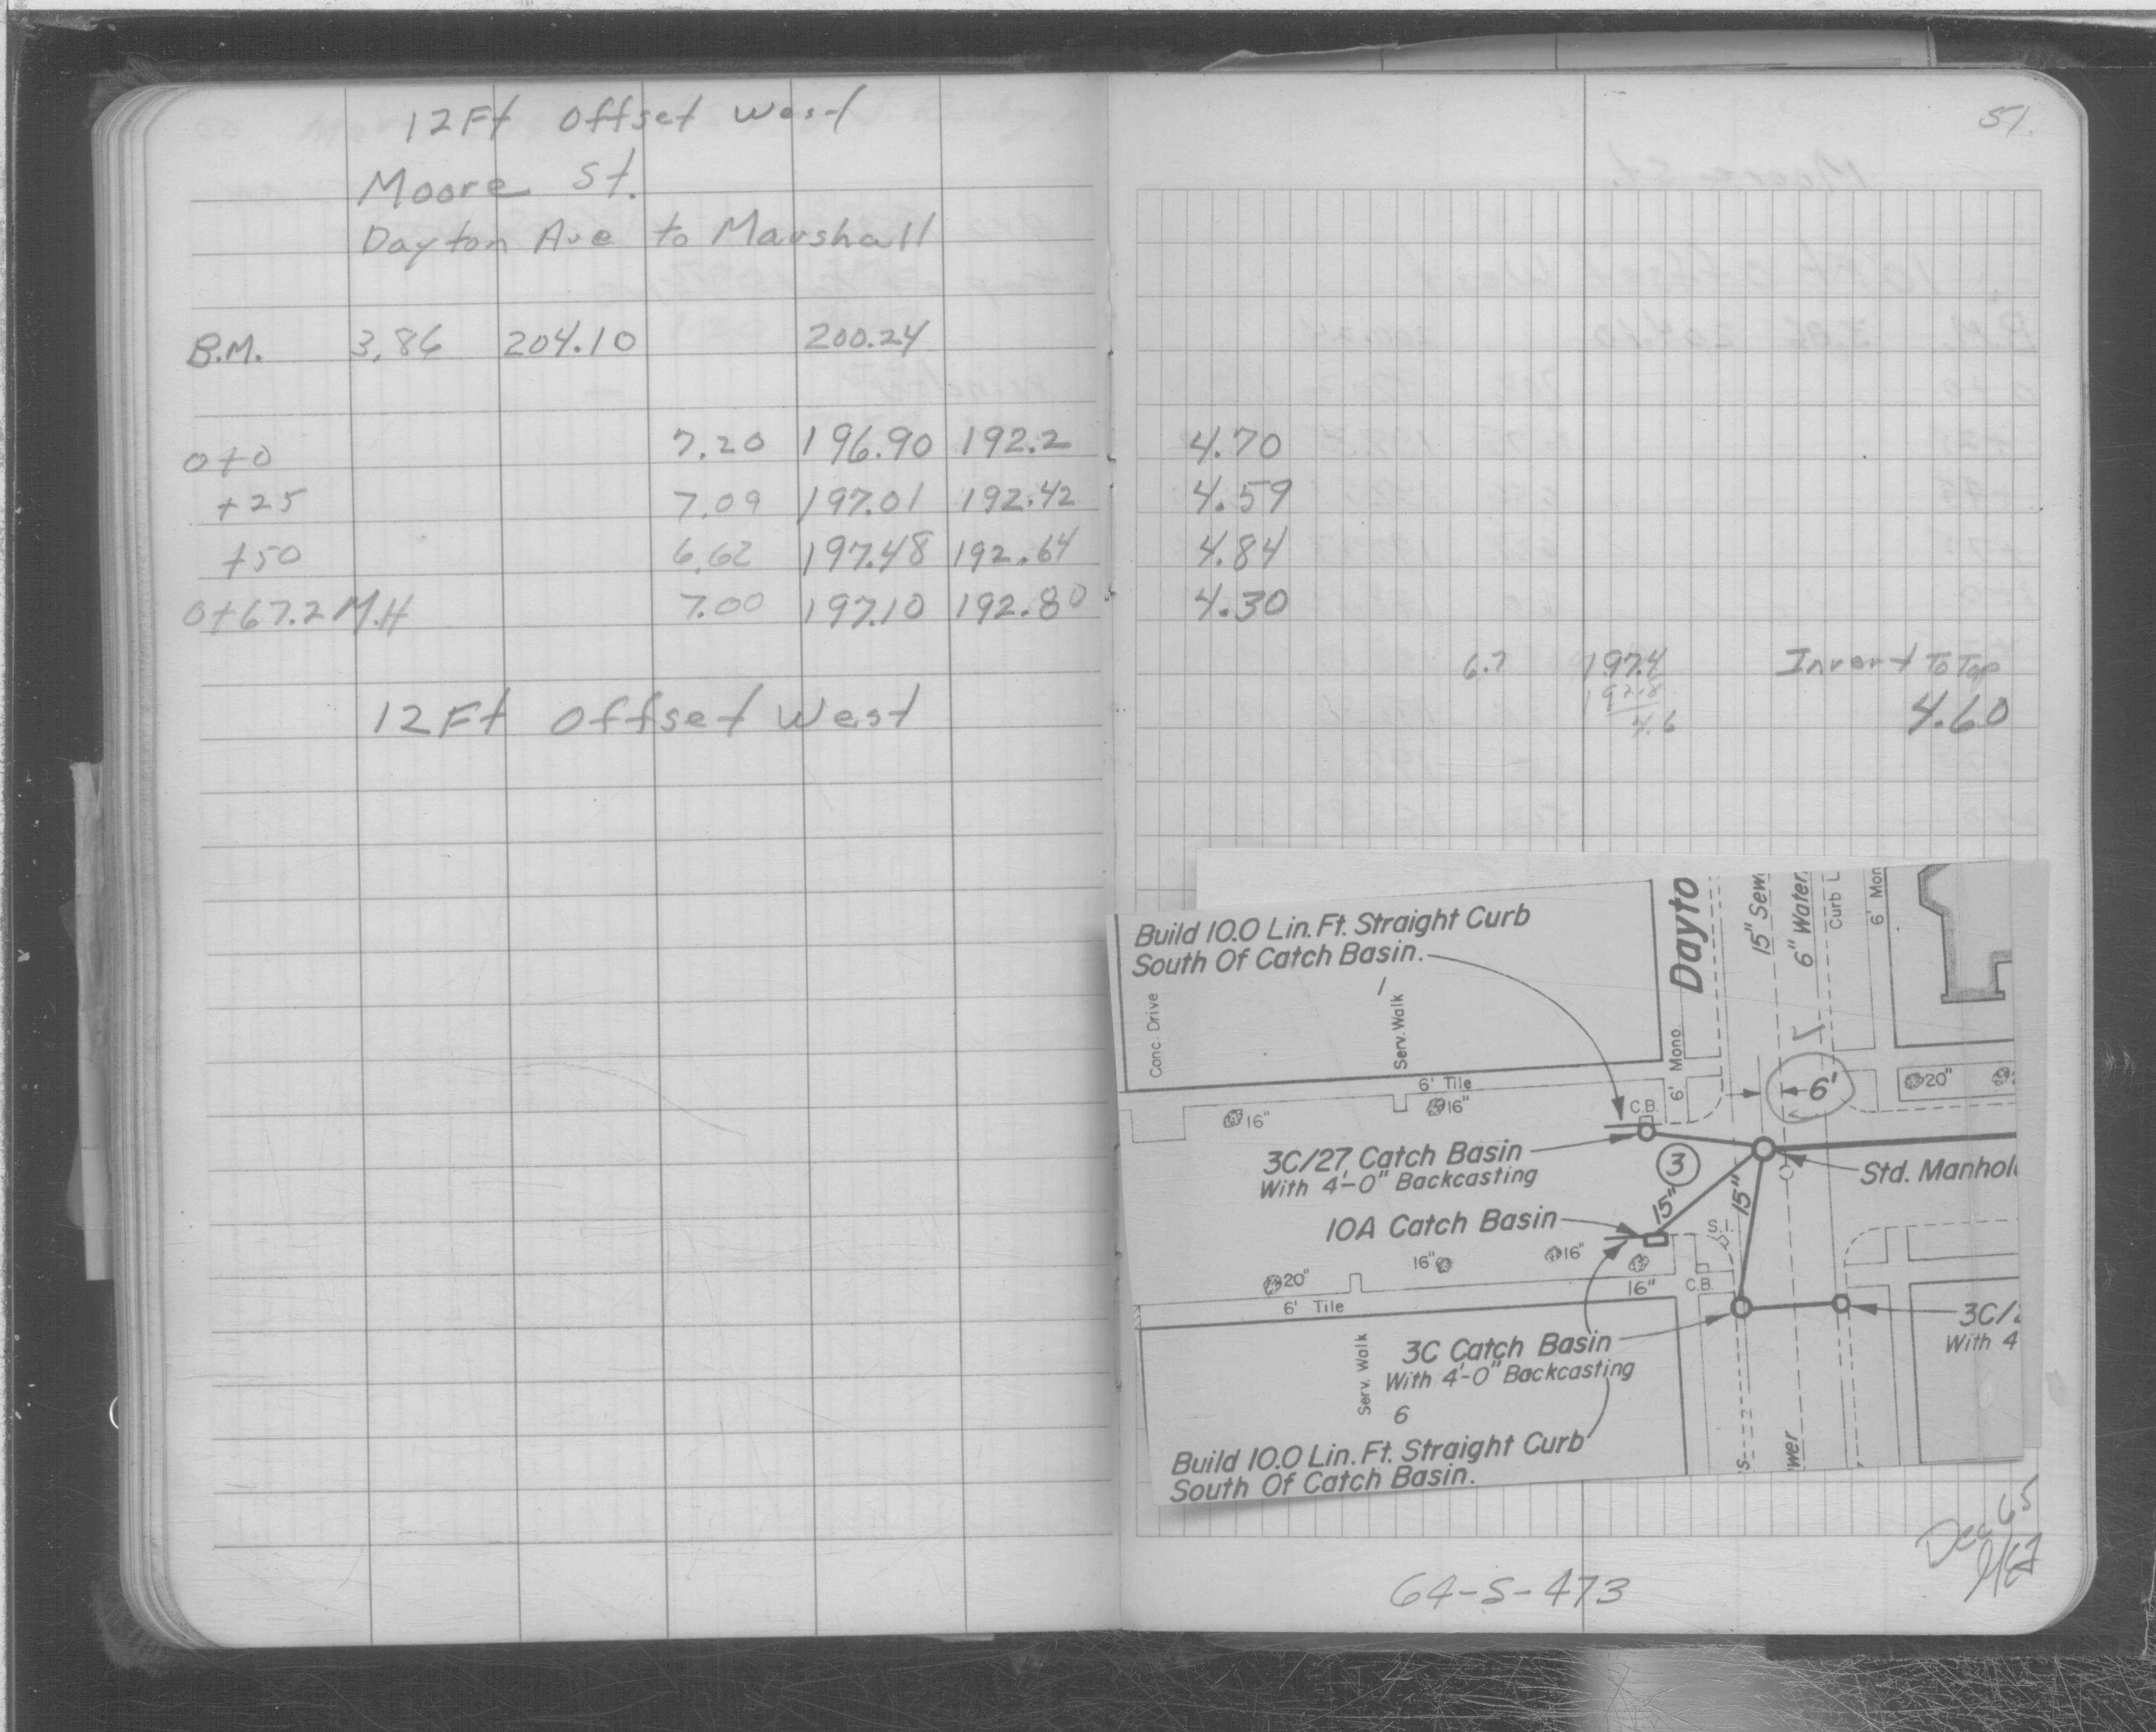 12Ft Offset West
Moore St.
Dayton Ave to Marshall
B.M. 3.86 204.10 200.24
0+0 7.20 196.90 192.2
+25 7.09 197.01 192.42
+50 6.62 197.48 192.64
0+67.2 M.H 7.00 197.10 192.80
12Ft Offset West
51.
4.70
4.59
4.84
4.30
6.7 197.4 Invert To Top
192.8
4.6 4.60
Build 10.0 Lin. Ft. Straight Curb
South Of Catch Basin.
Conc. Drive
1
Serv. Walk
6' Mono
Dayto
15" Sew
6" Water
Curb L
6' Mon
6' Tile
16"
16"
C.B.
6'
20"
3C/27 Catch Basin
With 4'-0" Backcasting
3
15"
15"
Std. Manhol
10A Catch Basin
S.I.
20"
16"
16"
16"
C.B.
6' Tile
Serv. Walk
3C Catch Basin
With 4'-0" Backcasting
6
3C/2
With 4
Build 10.0 Lin. Ft. Straight Curb
South Of Catch Basin.
S
wer
Dec 65
64-S-473